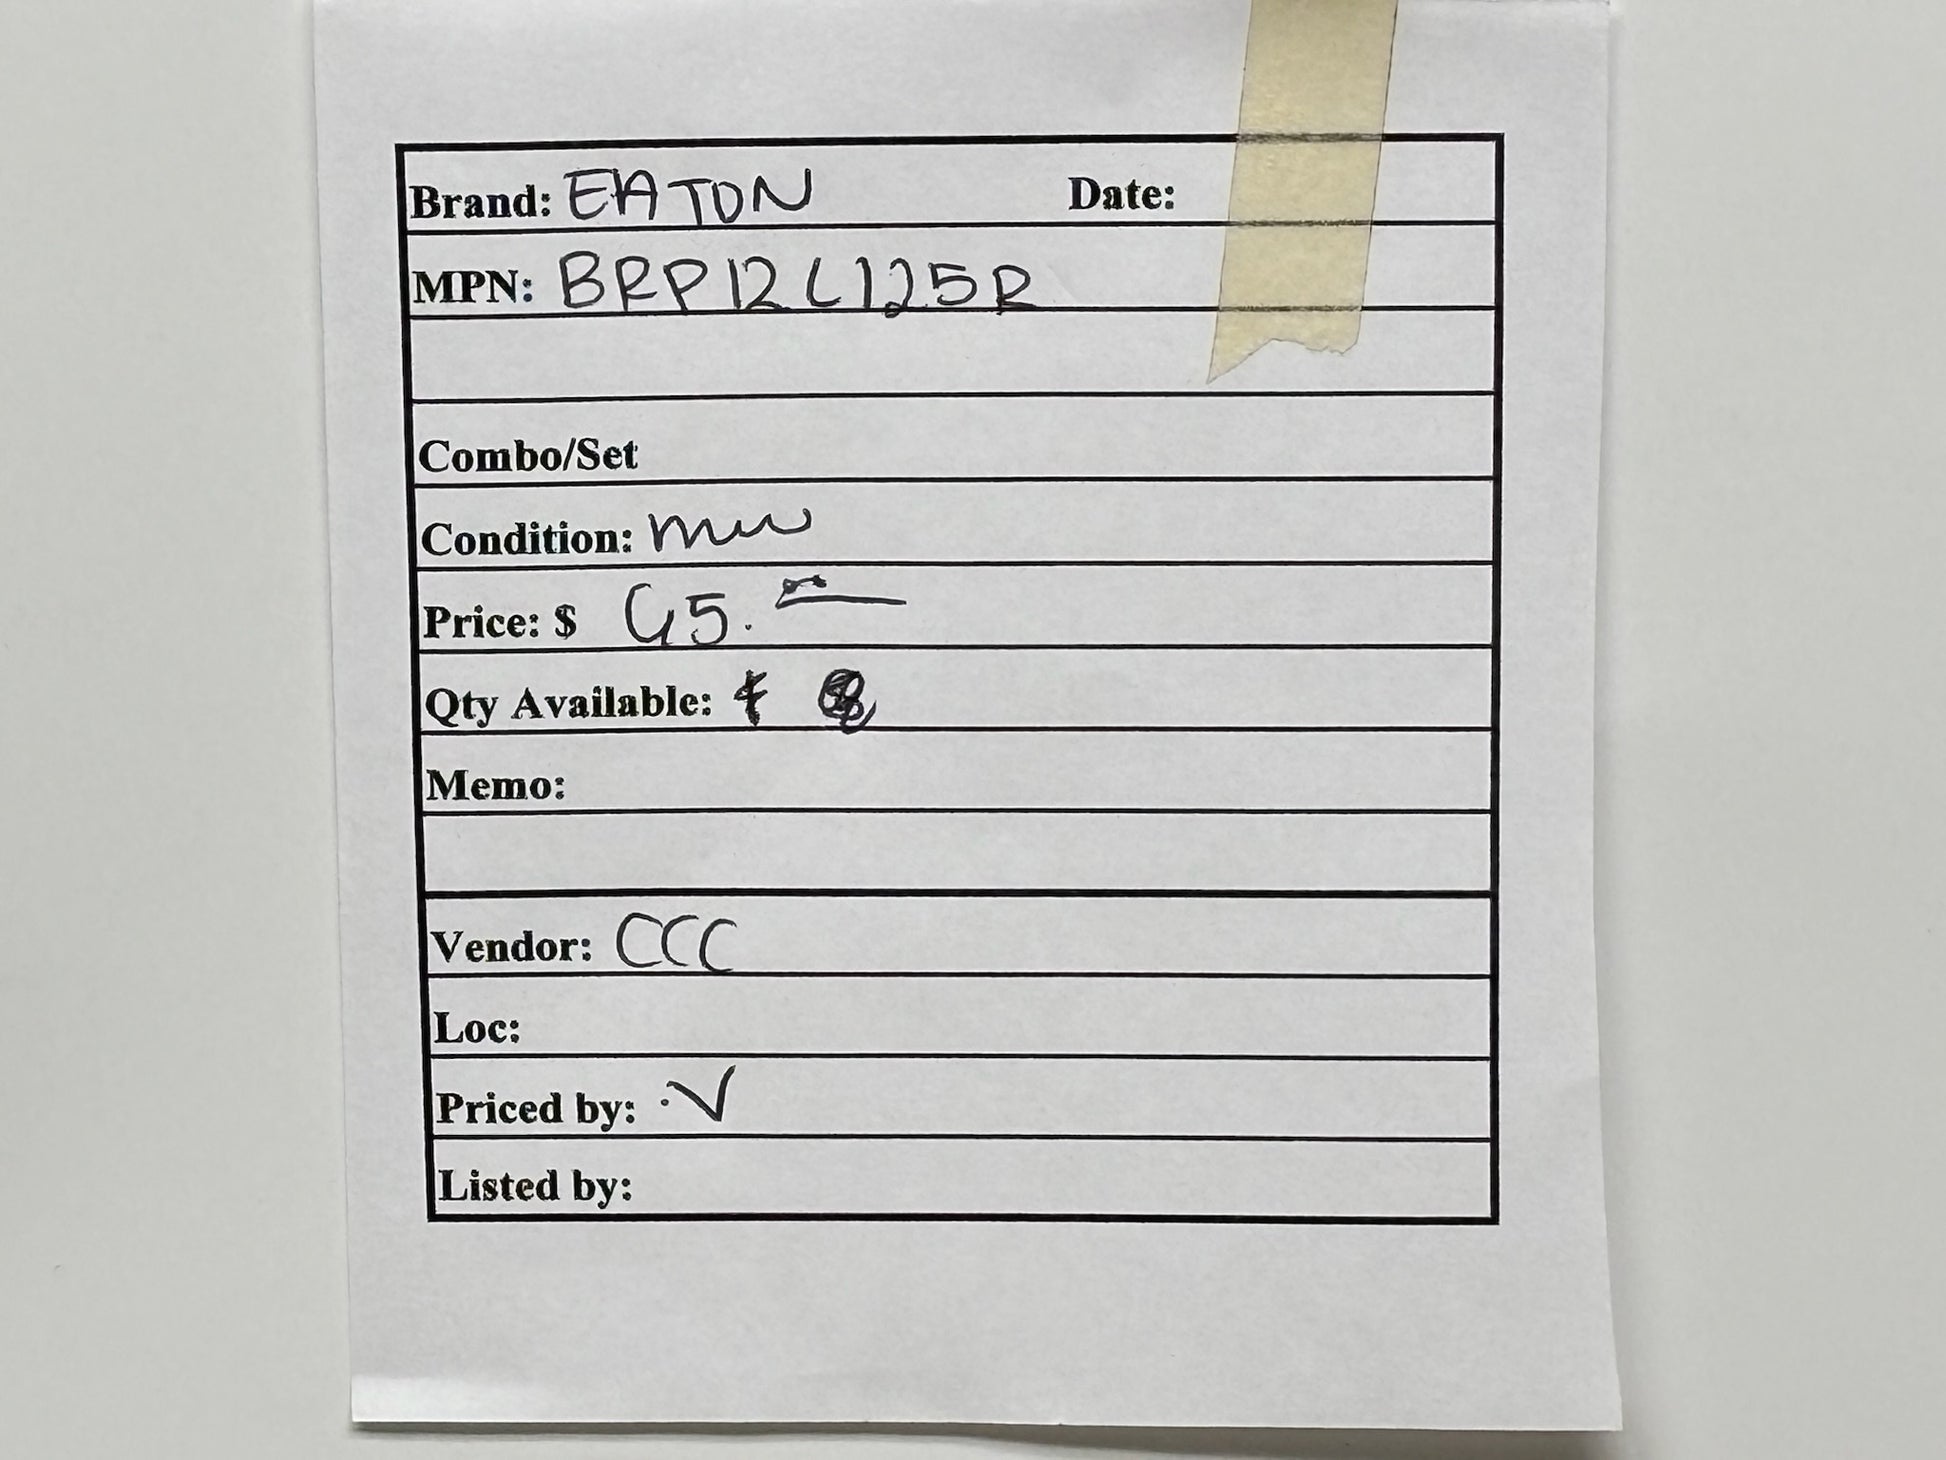 Brand: EATON Date:
MPN: BRP12L125R
Combo/Set
Condition: new
Price: $ 65.
Qty Available:
Memo:
Vendor: CCC
Loc:
Priced by: V
Listed by: